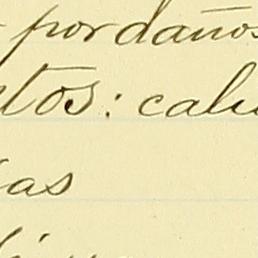 por daños
ctos: calu
ias